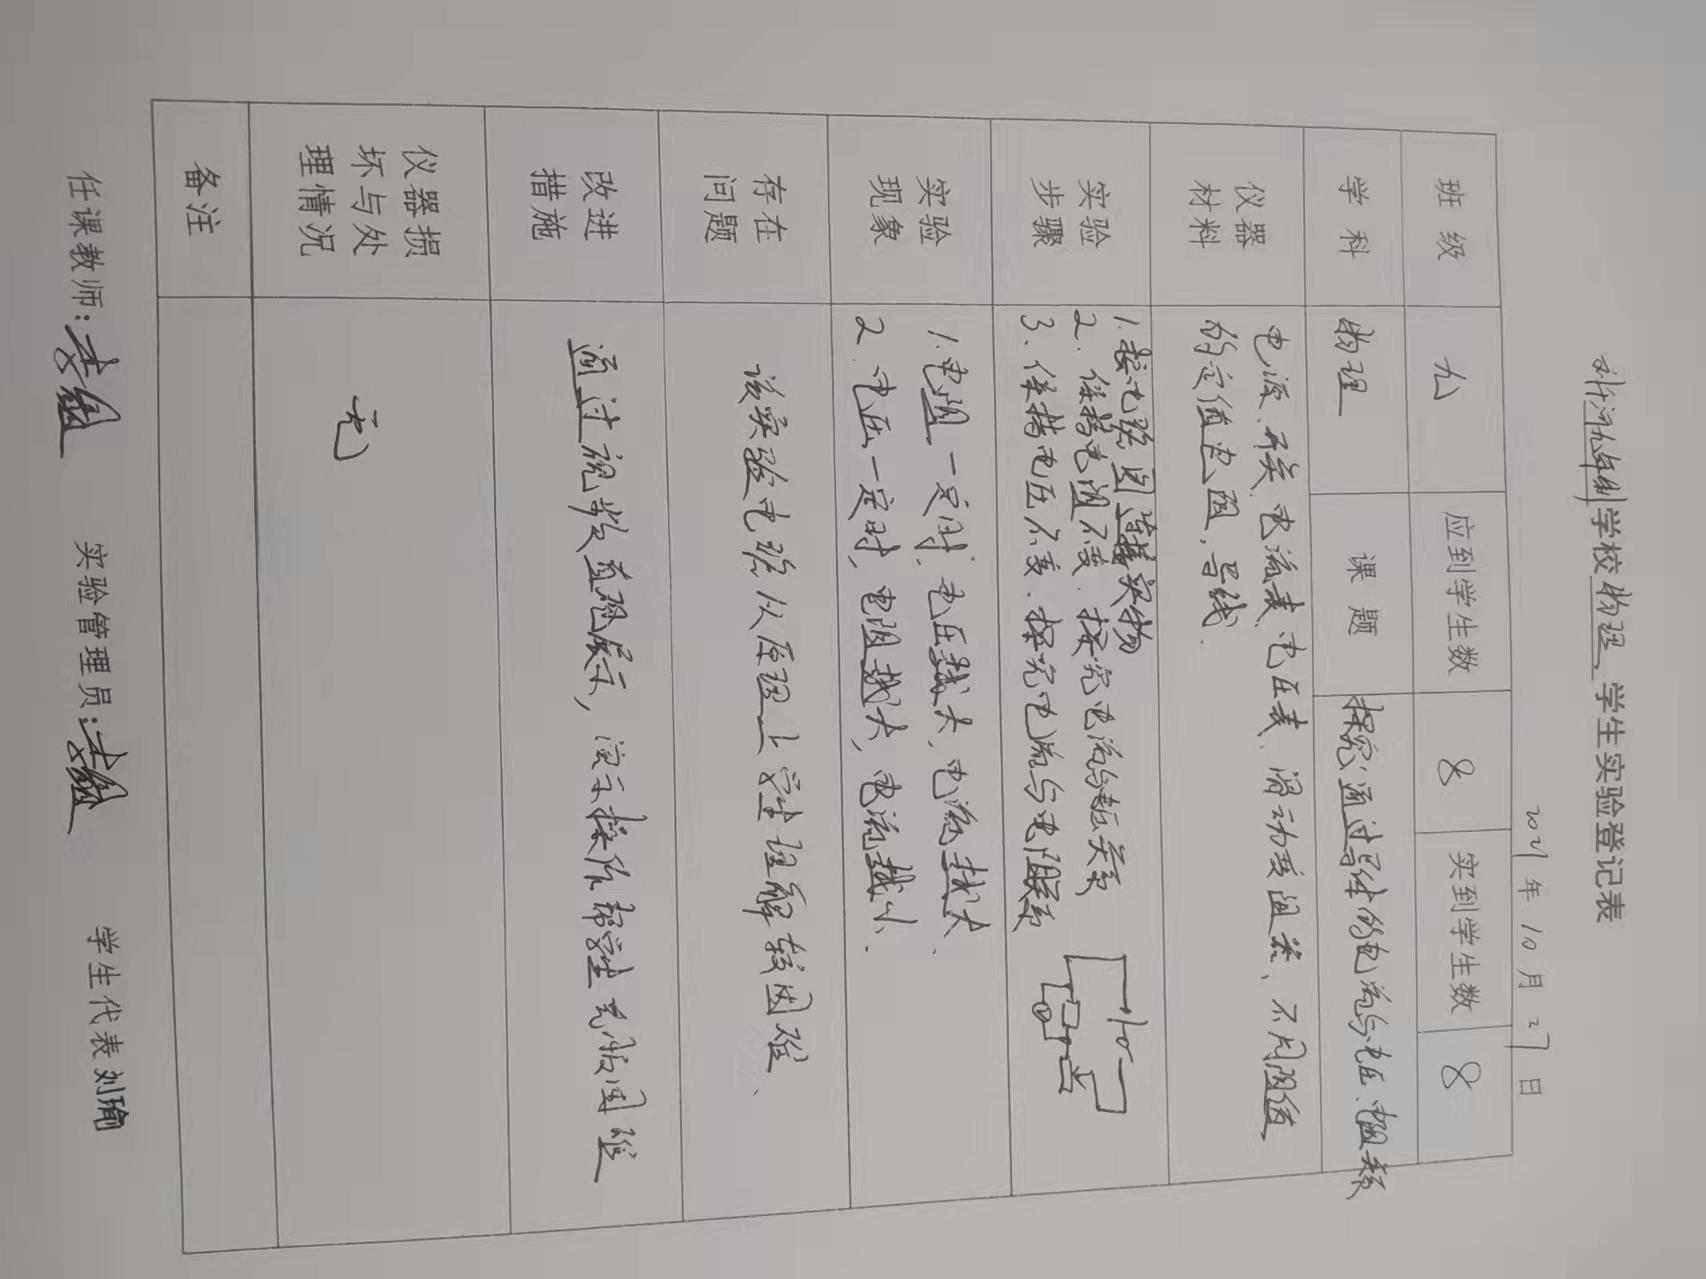 九年制学校物理 学生实验登记表
2021年10月27日
班级 九 应到学生数 8 实到学生数 8
学科 物理 课题 探究通过导体的电流与电压、电阻关系
仪器材料
电源、开关、电流表、电压表、滑动变阻器、不同阻值
的定值电阻，导线.
实验步骤
1.按电路图连接实物
2.保持电阻不变.探究电流与电压关系
3.保持电压不变.探究电流与电阻关系
实验现象
1.电阻一定时,电压越大,电流越大、
2.电压一定时,电阻越大,电流越小、
存在问题
该实验电路从原理上学生理解较困难、
改进措施
通过视频直观展示，演示操作帮学生克服困难
仪器损坏与处理情况
无
备注
任课教师: 实验管理员: 学生代表 刘瑜